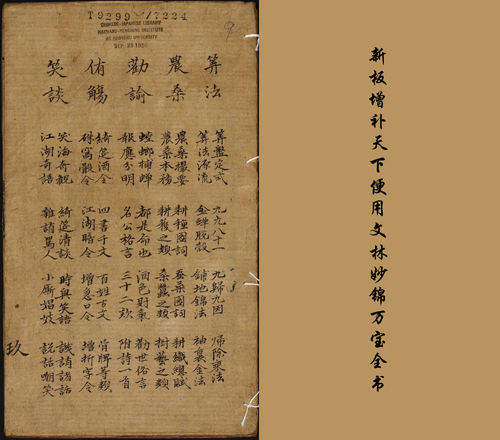 T9299/7224
CHINESE-JAPANESE LIBRARY
HARVARD-YENCHING INSTITUTE
AT HARVARD UNIVERSITY
算法
農桑
勸諭
侑觴
笑談
算盤定式 九九八十一 九歸九因 歸除乘法
算法源流 金蟬脫殼 鋪地錦法 袖裏金法
農桑撮要 耕種圖詞 蚕桑圖詞 耕織總賦
農桑本務 耕穫之類 桑蠶之類 樹藝之類
螳螂捕蟬 都是命也 酒色財氣 勸世俗言
報應分明 名公格言 三十二歎 附詩一首
綺筵酒令 四書千文 百姓古文 骨牌等類
窩骰令 江湖令 增急口令 增拆字令
笑海奇觀 綺筵清談 時興笑語 譏誚諸話
江湖奇語 雜誚罵人 小廝娼妓 説話嘲笑
玖
新板增补天下便用文林妙锦万宝全书